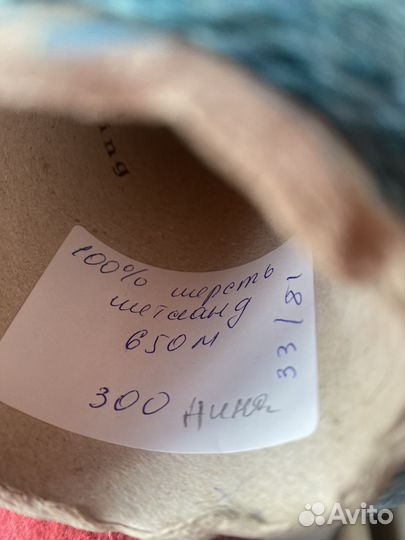 ing
100% шерсть
шетланд
650м
300 Нина
33/8
Avito